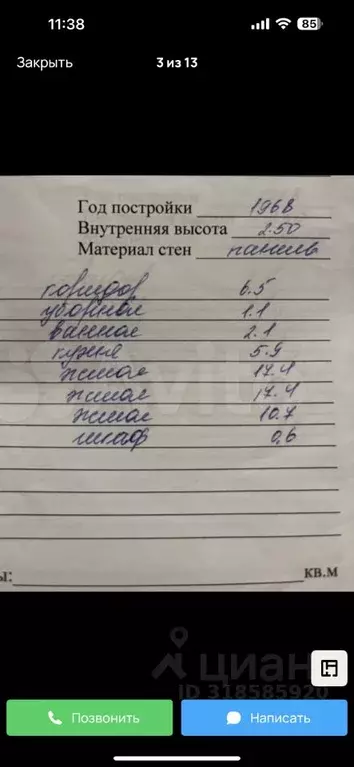 11:38
85
Закрыть
3 из 13
Год постройки 1968
Внутренняя высота 2.50
Материал стен панель
коридор 6.5
уборная 1.1
ванная 2.1
кухня 5.9
жилая 17.4
жилая 17.4
жилая 10.7
шкаф 0,6
ы: кв.м
Avito
циан
ID 318585920
Позвонить
Написать